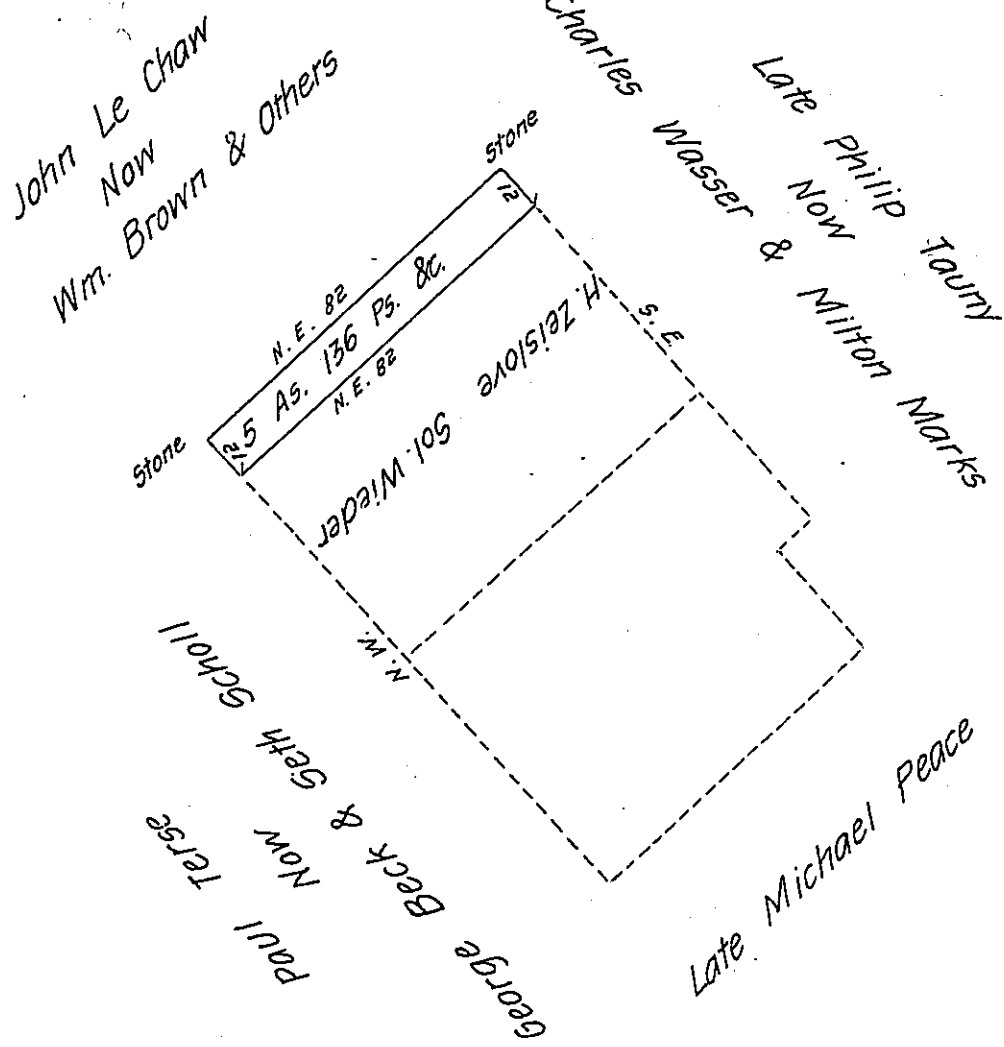 John Le Chaw
Now
Wm. Brown & Others
Late Philip Tauny
Now
Charles Wasser & Milton Marks
Stone
12
N. E. 82
5 As. 136 Ps. &c.
N. E. 82
12
Stone
S. E.
H. Zeislove
Sol. Wieder
N. W.
Paul Terse
Now
George Beck & Seth Scholl
Late Michael Peace